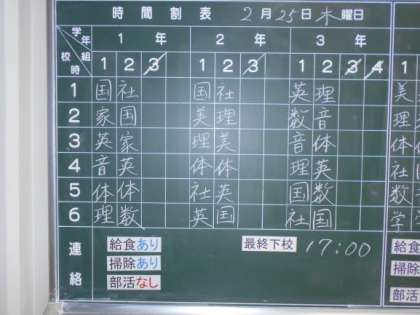 時間割表 2月25日木曜日
学年 組 校時 1年 2年 3年
1 2 3 1 2 3 1 2 3 4
1 国 社 国 社 英 理 美
2 家 国 美 理 数 音 理
3 英 家 理 美 音 体
4 音 英 体 体 理 英 社
5 体 体 社 英 国 数 数
6 理 数 英 国 社 国 学
連絡 給食あり 最終下校 17:00 給食
掃除あり 掃除
部活なし 部活